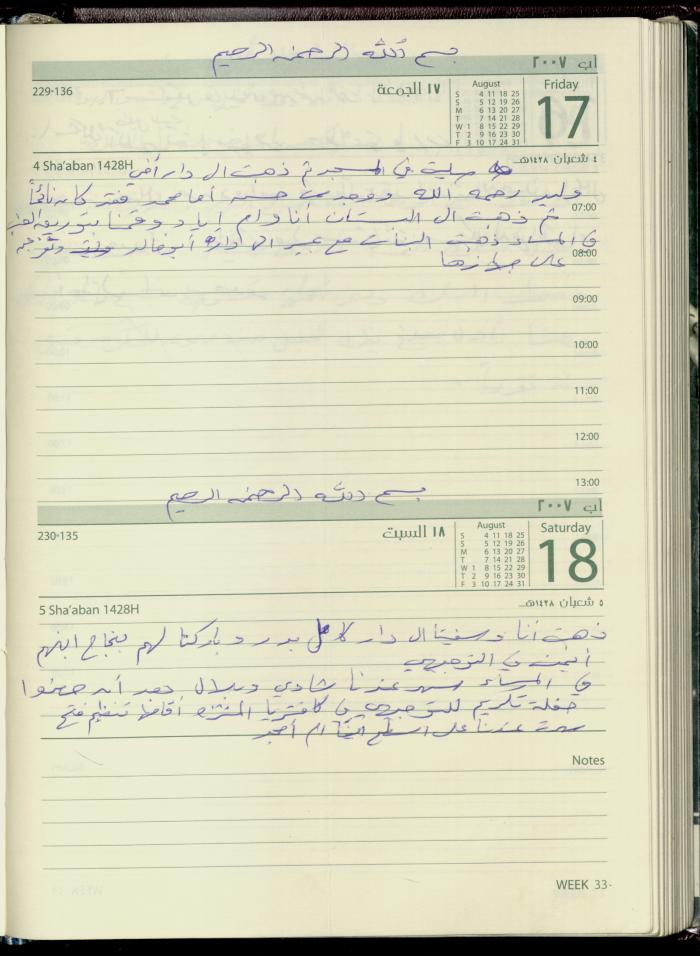 بسم الله الرحمن الرحيم
آب ٢٠٠٧
229-136
١٧ الجمعة
August
S 4 11 18 25
S 5 12 19 26
M 6 13 20 27
T 7 14 21 28
W 1 8 15 22 29
T 2 9 16 23 30
F 3 10 17 24 31
Friday
17
4 Sha'aban 1428H
٤ شعبان ١٤٢٨هـ
صليت في المسجد ثم ذهبت الى دار أخي
وليد رحمه الله ووجدت حسنه أما محمد فقد كان نائماً
07:00
ثم ذهبت الى البستان أنا وام إياد وقمنا بتوريق
في المساء ذهبت البنات مع عبير الى دار أبو خالد
08:00
على جوازها
09:00
10:00
11:00
12:00
13:00
بسم الله الرحمن الرحيم
آب ٢٠٠٧
230-135
١٨ السبت
August
S 4 11 18 25
S 5 12 19 26
M 6 13 20 27
T 7 14 21 28
W 1 8 15 22 29
T 2 9 16 23 30
F 3 10 17 24 31
Saturday
18
5 Sha'aban 1428H
٥ شعبان ١٤٢٨هـ
ذهبت أنا وسفيتا ال دار كامل بدر وباركنا لهم بنجاح ابنهم
في التوجيهي
في المساء سهر عندنا شادي وبلال بعد أن حضروا
حفلة تكريم للتوجيهي في كافتريا المنتزه أقامها تنظيم فتح
سهرت عندنا على السطح أيضا ام أمجد
Notes
WEEK 33